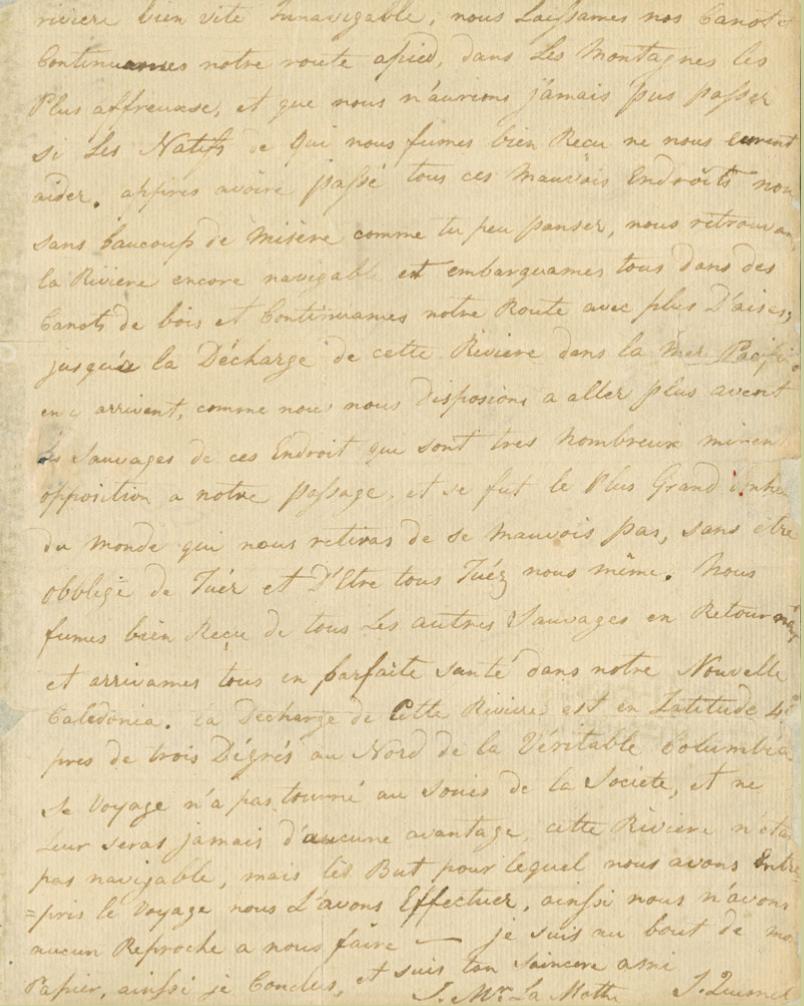 riviere bien vite Innavigable, nous Laissames nos Canots et
Continuames notre route apied, dans Les Montagnes les
Plus affreuse, et que nous n'aurions jamais pus passer
si Les Natifs de Qui nous fumes bien Recu ne nous eurent
aider. appres avoire passé tous ces Mauvais Endroits non
sans baucoup de Misère comme tu peu panser, nous retrouvam
la Riviere encore navigable et embarquames tous dans des
Canots de bois et Continuames notre Route avec plus D'aises,
jusqu'a la Décharge de cette Riviere dans la Mer Pacifi
en arrivent, comme nous nous disposions a aller plus avent
les Sauvages de ces Endroit qui sont tres Nombreux mirent
opposition a notre passage, et se fut le Plus Grand
du Monde qui nous retiras de se Mauvois pas, sans être
obbligé de Tuér et D'Etre tous Tuéz nous même. Nous
fumes bien Reçu de tous Les autres Sauvages en Retournant
et arrivames tous en parfaite santé dans notre Nouvelle
Caledonia. la Decharge de Cette Riviere est en Latitude
pres de trois Dégrés au Nord de la Véritable Columbia
se Voyage n'a pas tourné au de la Societé, et ne
Leur seras jamais d'aucune avantage, cette Riviere n'eta
pas navigable, mais les But pour lequel nous avons Entre
=pris le Voyage nous L'avons Effectuer, ainssi nous n'avons
aucun Reproche a nous faire — je suis au bout de mo
Papier, ainssi je Conclus, et suis ton saincere ami
J. Mr. La Mothe J. Quesnel